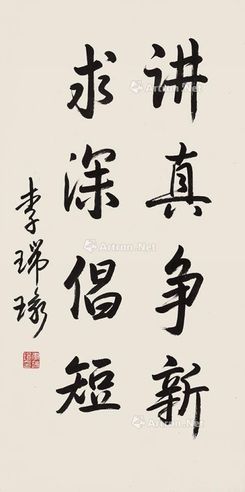 讲真争新
求深倡短
李瑞环
Artron.Net
Artron.Net